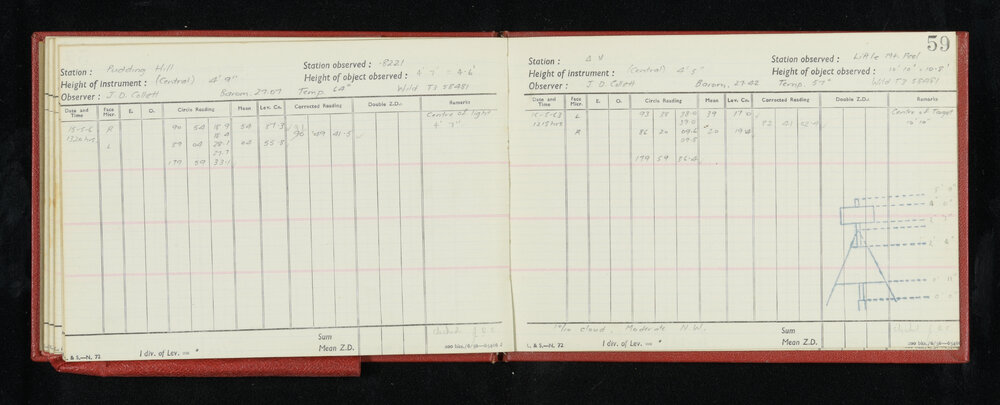 Station : Pudding Hill
Station observed : 8221
Height of instrument : (Central) 4' 9"
Height of object observed : 4' 7" = 4.6'
Observer : J. D. Collett Barom. 27.07 Temp. 64° Wild T3 58481
Date and Time Face Micr. E. O. Circle Reading Mean Lev. Co. Corrected Reading Double Z.D.: Remarks
Centre of light
4' 7"
15-5-6
1320 hrs. R 90 54 18.9 54 37.3
18.4
90 49 41.5
L 89 04 28.1 04 55.8
27.7
179 59 33.1
Sum
Mean Z.D.
L. & S.—N. 72. 1 div. of Lev. =
59
Station : Δ V
Station observed : Little Mt. Peel
Height of instrument : (Central) 4' 5"
Height of object observed : 10' 10" = 10.8'
Observer : J. D. Collett Barom. 27.42 Temp. 57° Wild T3 58481
Date and Time Face Micr. E. O. Circle Reading Mean Lev. Co. Corrected Reading Double Z.D.: Remarks
Centre of Target
10' 10"
15-5-63
1215 hrs L 93 38 38.0 39 17.0
39.0
R 86 20 09.6 20 19.4
09.8
179 59 36.4
10/10 cloud, Moderate N.W.
Sum
Mean Z.D.
L. & S.—N. 72. 1 div. of Lev. =